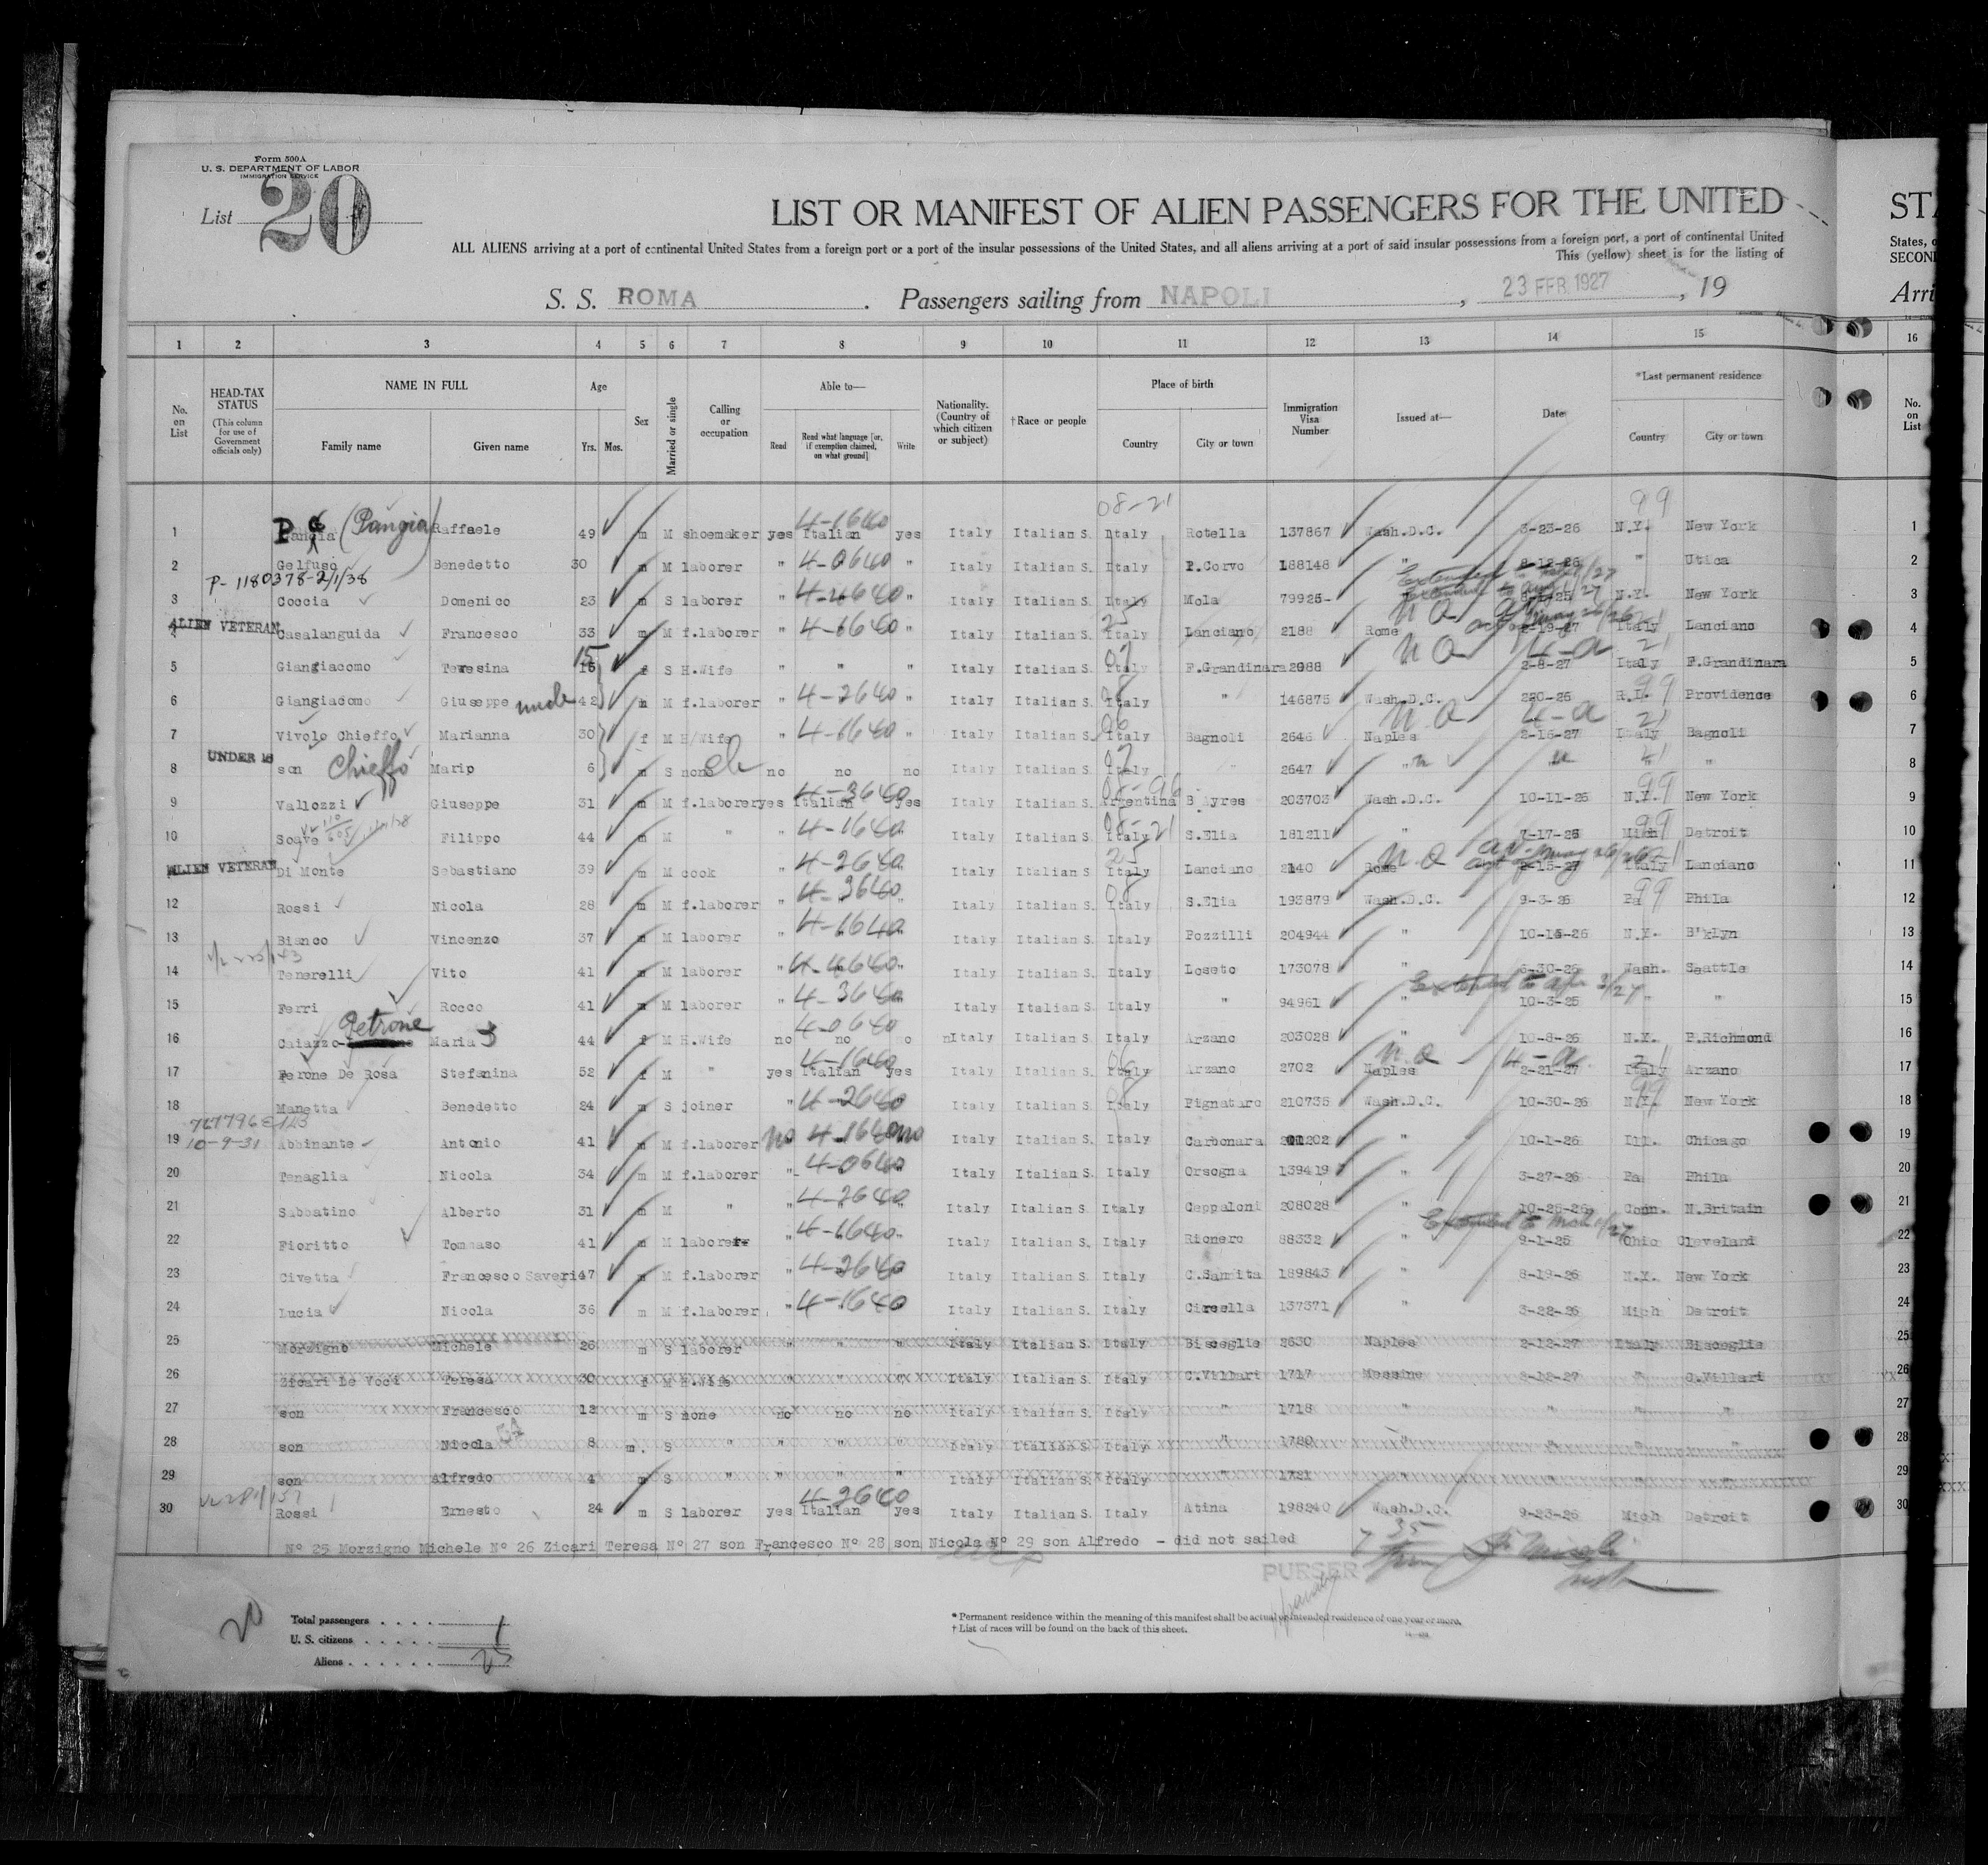 Form 500A
U. S. DEPARTMENT OF LABOR
IMMIGRATION SERVICE
List 20
LIST OR MANIFEST OF ALIEN PASSENGERS FOR THE UNITED
ALL ALIENS arriving at a port of continental United States from a foreign port or a port of the insular possessions of the United States, and all aliens arriving at a port of said insular possessions from a foreign port, a port of continental United
This (yellow) sheet is for the listing of
S. S. ROMA . Passengers sailing from NAPOLI , 23 FEB 1927 , 19
STA
States, o
SECOND
Arri
1 2 3 4 5 6 7 8 9 10 11 12 13 14 15 16
No. on List
HEAD-TAX STATUS (This column for use of Government officials only)
NAME IN FULL
Family name Given name
Age Yrs. Mos.
Sex
Married or single
Calling or occupation
Able to—
Read Read what language [or, if exemption claimed, on what ground] Write
Nationality. (Country of which citizen or subject)
†Race or people
Place of birth
Country City or town
Immigration Visa Number
Issued at—
Date
*Last permanent residence
Country City or town
No. on List
08-21 99
1 (Pangia) Raffaele 49 m M shoemaker yes Italian 4-1640 yes Italy Italian S. Italy Rotella 137867 Wash.D.C. 3-23-26 N.Y. New York 1
2 Gelfuso Benedetto 30 m M laborer " 4-0640 " Italy Italian S. Italy P.Corvo 188148 " 8-12-26 " Utica 2
P- 1180378-2/1/38
3 Coccia Domenico 23 m S laborer " " Italy Italian S. Italy Mola 79925 N.Y. New York 3
ALIEN VETERAN
4 Casalanguida Francesco 33 m M f.laborer " 4-1640 " Italy Italian S. Italy Lanciano 2188 Rome 2-19-27 Italy Lanciano 4
5 Giangiacomo Teresina 15 f S H.Wife " " " Italy Italian S. Italy F.Grandinara 2088 2-8-27 Italy F.Grandinara 5
6 Giangiacomo Giuseppe uncle 42 m M f.laborer " 4-2640 " Italy Italian S. Italy " 146875 Wash.D.C. R.I. Providence 6
7 Vivolo Chieffo Marianna 30 f M H/Wife " 4-1640 " Italy Italian S. Italy Bagnoli 2646 Naples 2-16-27 Italy Bagnoli 7
UNDER 16
8 son Chieffo Mario 6 m S none no no no Italy Italian S. Italy " 2647 " " " " 8
9 Vallozzi Giuseppe 31 m M f.laborer yes Italian 4-3640 yes Italy Italian S. Argentina B Ayres 203703 Wash.D.C. 10-11-26 N.Y. New York 9
10 Soave Filippo 44 m M " " 4-1640 " Italy Italian S. Italy S.Elia 181211 " 7-17-26 Mich Detroit 10
ALIEN VETERAN
11 Di Monte Sebastiano 39 m M cook " 4-2640 Italy Italian S. Italy Lanciano 2140 Rome 2-15-27 Italy Lanciano 11
12 Rossi Nicola 28 m M f.laborer " 4-3640 Italy Italian S. Italy S.Elia 193879 Wash.D.C. 9-3-26 Pa Phila 12
13 Bianco Vincenzo 37 m M laborer " 4-1640 " Italy Italian S. Italy Pozzilli 204944 " 10-16-26 N.Y. B'klyn 13
14 Tenerelli Vito 41 m M laborer " 4-4640 " Italy Italian S. Italy Loseto 173078 " 6-30-26 Wash. Seattle 14
15 Ferri Rocco 41 m M laborer " 4-3640 Italy Italian S. Italy " 94961 " 10-3-25 " " 15
16 Caiazzo Petrone Maria 44 f M H.Wife no no no Italy Italian S. Italy Arzano 203028 " 10-8-26 N.Y. P.Richmond 16
17 Perone De Rosa Stefanina 52 f M " yes Italian 4-1640 yes Italy Italian S. Italy Arzano 2702 Naples 2-21-27 Italy Arzano 17
18 Manetta Benedetto 24 m S joiner " 4-2640 Italy Italian S. Italy Pignataro 210735 Wash.D.C. 10-30-26 N.Y. New York 18
10-9-31
19 Abbinante Antonio 41 m M f.laborer no 4-1640 no Italy Italian S. Italy Carbonara 201202 " 10-1-26 Ill. Chicago 19
20 Tenaglia Nicola 34 m M f.laborer " 4-0640 Italy Italian S. Italy Orsogna 139419 " 3-27-26 Pa Phila 20
21 Sabbatino Alberto 31 m M " " 4-2640 Italy Italian S. Italy Ceppaloni 208028 " 10-26-26 Conn. N.Britain 21
22 Fioritto Tommaso 41 m M laborer " 4-1640 Italy Italian S. Italy Rionero 88332 " 9-1-25 Ohio Cleveland 22
23 Civetta Francesco Saverio 47 m M f.laborer " 4-2640 Italy Italian S. Italy C.Sannita 189843 " 8-19-26 N.Y. New York 23
24 Lucia Nicola 36 m M f.laborer " 4-1640 Italy Italian S. Italy Circella 137371 " 3-22-26 Mich Detroit 24
25 Morzigno Michele 26 m S laborer " " " Italy Italian S. Italy Bisceglie 2630 Naples 2-12-27 Italy Bisceglie 25
26 Zicari De Voci Teresa 30 f M H.Wife " " " Italy Italian S. Italy C.Villari 1717 Messina 2-12-27 " C.Villari 26
27 son Francesco 12 m S none no no no Italy Italian S. Italy " 1718 " " " " 27
28 son Nicola 8 m. S " " " " Italy Italian S. Italy " 1720 " " " " 28
29 son Alfredo 4 m S " " " " Italy Italian S. Italy " 1721 " " " " 29
30 Rossi Ernesto 24 m S laborer yes Italian 4-2640 yes Italy Italian S. Italy Atina 198240 Wash.D.C. 9-23-26 Mich Detroit 30
Nº 25 Morzigno Michele Nº 26 Zicari Teresa Nº 27 son Francesco Nº 28 son Nicola Nº 29 son Alfredo - did not sailed
PURSER
20
Total passengers
U. S. citizens 1
Aliens 25
* Permanent residence within the meaning of this manifest shall be actual or intended residence of one year or more.
† List of races will be found on the back of this sheet.